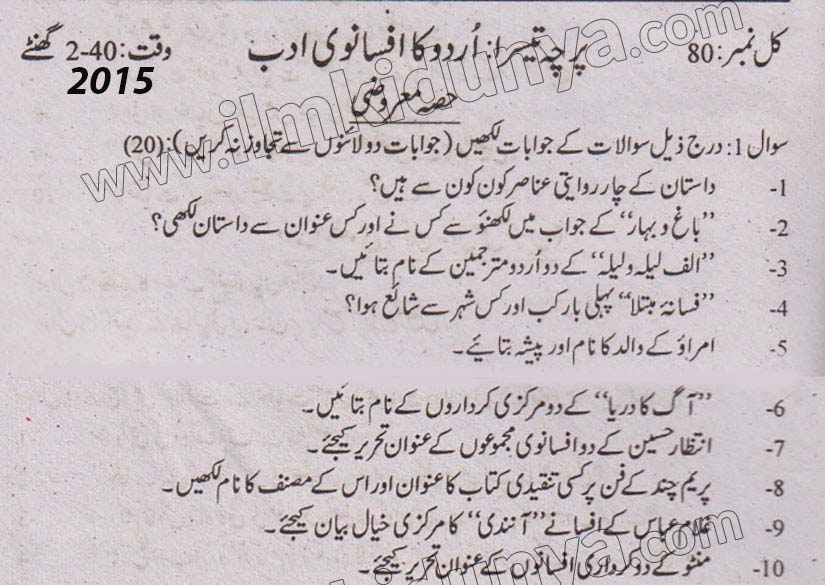 کل نمبر: 80 پرچہ تیسرا: اُردو کا افسانوی ادب وقت: 40-2 گھنٹے
2015
حصہ معروضی
سوال 1: درج ذیل سوالات کے جوابات لکھیں (جوابات دو لائنوں سے تجاوز نہ کریں): (20)
1- داستان کے چار روایتی عناصر کون کون سے ہیں؟
2- ”باغ و بہار“ کے جواب میں لکھنؤ سے کس نے اور کس عنوان سے داستان لکھی؟
3- ”الف لیلہ ولیلہ“ کے دو اُردو مترجمین کے نام بتائیں۔
4- ”فسانۂ مبتلا“ پہلی بار کب اور کس شہر سے شائع ہوا؟
5- امراؤ کے والد کا نام اور پیشہ بتائیے۔
6- ”آگ کا دریا“ کے دو مرکزی کرداروں کے نام بتائیں۔
7- انتظار حسین کے دو افسانوی مجموعوں کے عنوان تحریر کیجئے۔
8- پریم چند کے فن پر کسی تنقیدی کتاب کا عنوان اور اس کے مصنف کا نام لکھیں۔
9- غلام عباس کے افسانے ”آنندی“ کا مرکزی خیال بیان کیجئے۔
10- منٹو کے دو کرداری افسانوں کے عنوان تحریر کیجئے۔
www.ilmkidunya.com